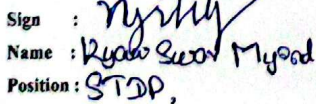 Sign :
Name : Kyaw Swar Myo
Position : STDP,